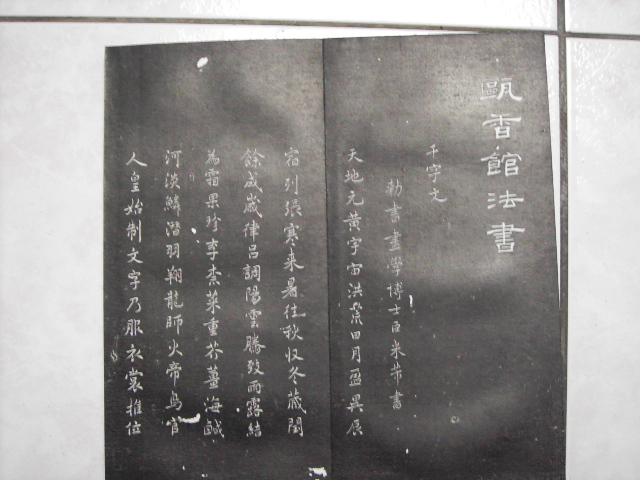 甌香館法書
千字文
勑書畫學博士臣米芾書
天地元黃宇宙洪荒日月盈昃辰
宿列張寒来暑往秋収冬藏閏
餘成歲律呂調陽雲騰致雨露結
為霜果珍李柰菜重芥薑海鹹
河淡鱗潛羽翔龍師火帝鳥官
人皇始制文字乃服衣裳推位